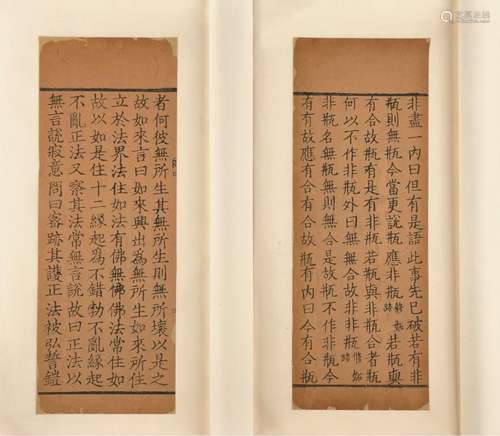 非盡一內曰但有是語此事先已破若有非
瓶則無瓶今當更說瓶應非瓶脩妬路若瓶與
有合故瓶有是有非瓶若瓶與非瓶合者瓶
何以不作非瓶外曰無無合故非非瓶脩妬路
非瓶名無瓶無則無合是故瓶不作非瓶今
有有故應有合有合故瓶有內曰今有合瓶
者何彼無所生其無所生則無所壞以是之
故如來言曰如來興出爲無所生如來所住
立於法界法住如法有佛無佛佛法常住如
故以如是住十二緣起爲不錯勃不亂緣起
不亂正法又察其法常無言說故曰正法以
無言說寂意問曰審跡其護正法被弘誓鎧